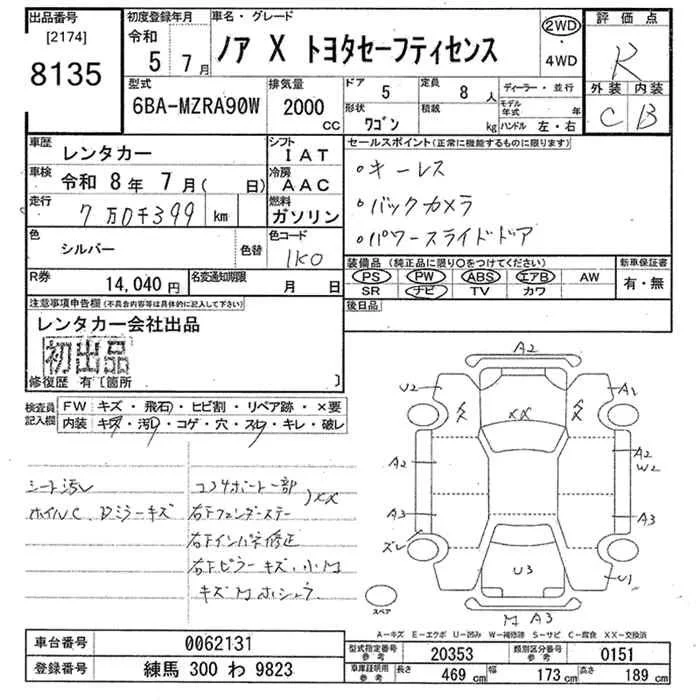 出品番号
[2174]
8135
初度登録年月
令和
5 7月
車名・グレード
ノア X トヨタセーフティセンス
2WD
・
4WD
評価点
R
外装 内装
C B
型式
6BA-MZRA90W
排気量
2000
CC
ドア
5
定員
8 人
形状
ワゴン
積載
kg
ディーラー・並行
モデル年式 年
ハンドル 左・右
車歴
レンタカー
シフト
IAT
車検
令和 8年 7月( 日)
冷房
AAC
走行
7万0千399 km
燃料
ガソリン
色
シルバー
色替
色コード
1K0
R券
14,040円
名変通知期限
月 日
セールスポイント(正常に機能するものに限ります)
・キーレス
・バックカメラ
・パワースライドドア
装備品(純正品に限り○をつけてください)
PS PW ABS エアB AW
SR ナビ TV カワ
新車保証書
有・無
後日品
注意事項申告欄(不具合内容等は具体的に記入して下さい)
レンタカー会社出品
初出品
修復歴 有〔箇所 〕
検査員記入欄
FW キズ・飛石・ヒビ割・リペア跡・×要
内装 キズ・汚レ・コゲ・穴・スレ・キレ・破レ
シート汚レ
ホイルC、Dミラーキズ
コアサポート一部)XX
右下フェンダーステー
右下インパネ修正
右下ピラーキズ、小M
キズMホシュウ
A2
U2
A1
XX
A2
A2
W2
A3
A3
ズレ
U3
U1
M A3
スペア
A-キズ E-エクボ U-凹み W-補修跡 S-サビ C-腐食 XX-交換済
車台番号
0062131
登録番号
練馬 300 わ 9823
型式指定番号
参考
20353
類別区分番号
参考
0151
車庫証明用
参考
長さ
469 cm
幅
173 cm
高さ
189 cm